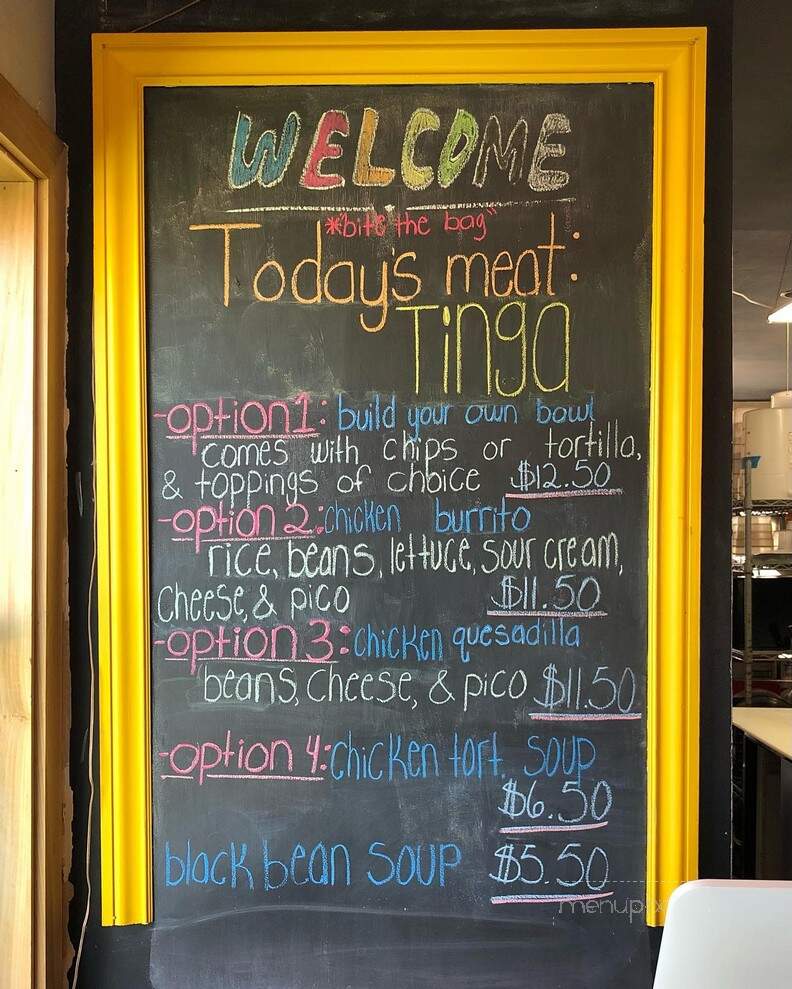 WELCOME
*"bite the bag"
Today's meat:
Tinga
-option 1: build your own bowl
comes with chips or tortilla,
& toppings of choice $12.50
-option 2: chicken burrito
rice, beans, lettuce, sour cream,
cheese, & pico $11.50
-option 3: chicken quesadilla
beans, cheese, & pico $11.50
-option 4: chicken tort. soup
$6.50
black bean soup $5.50